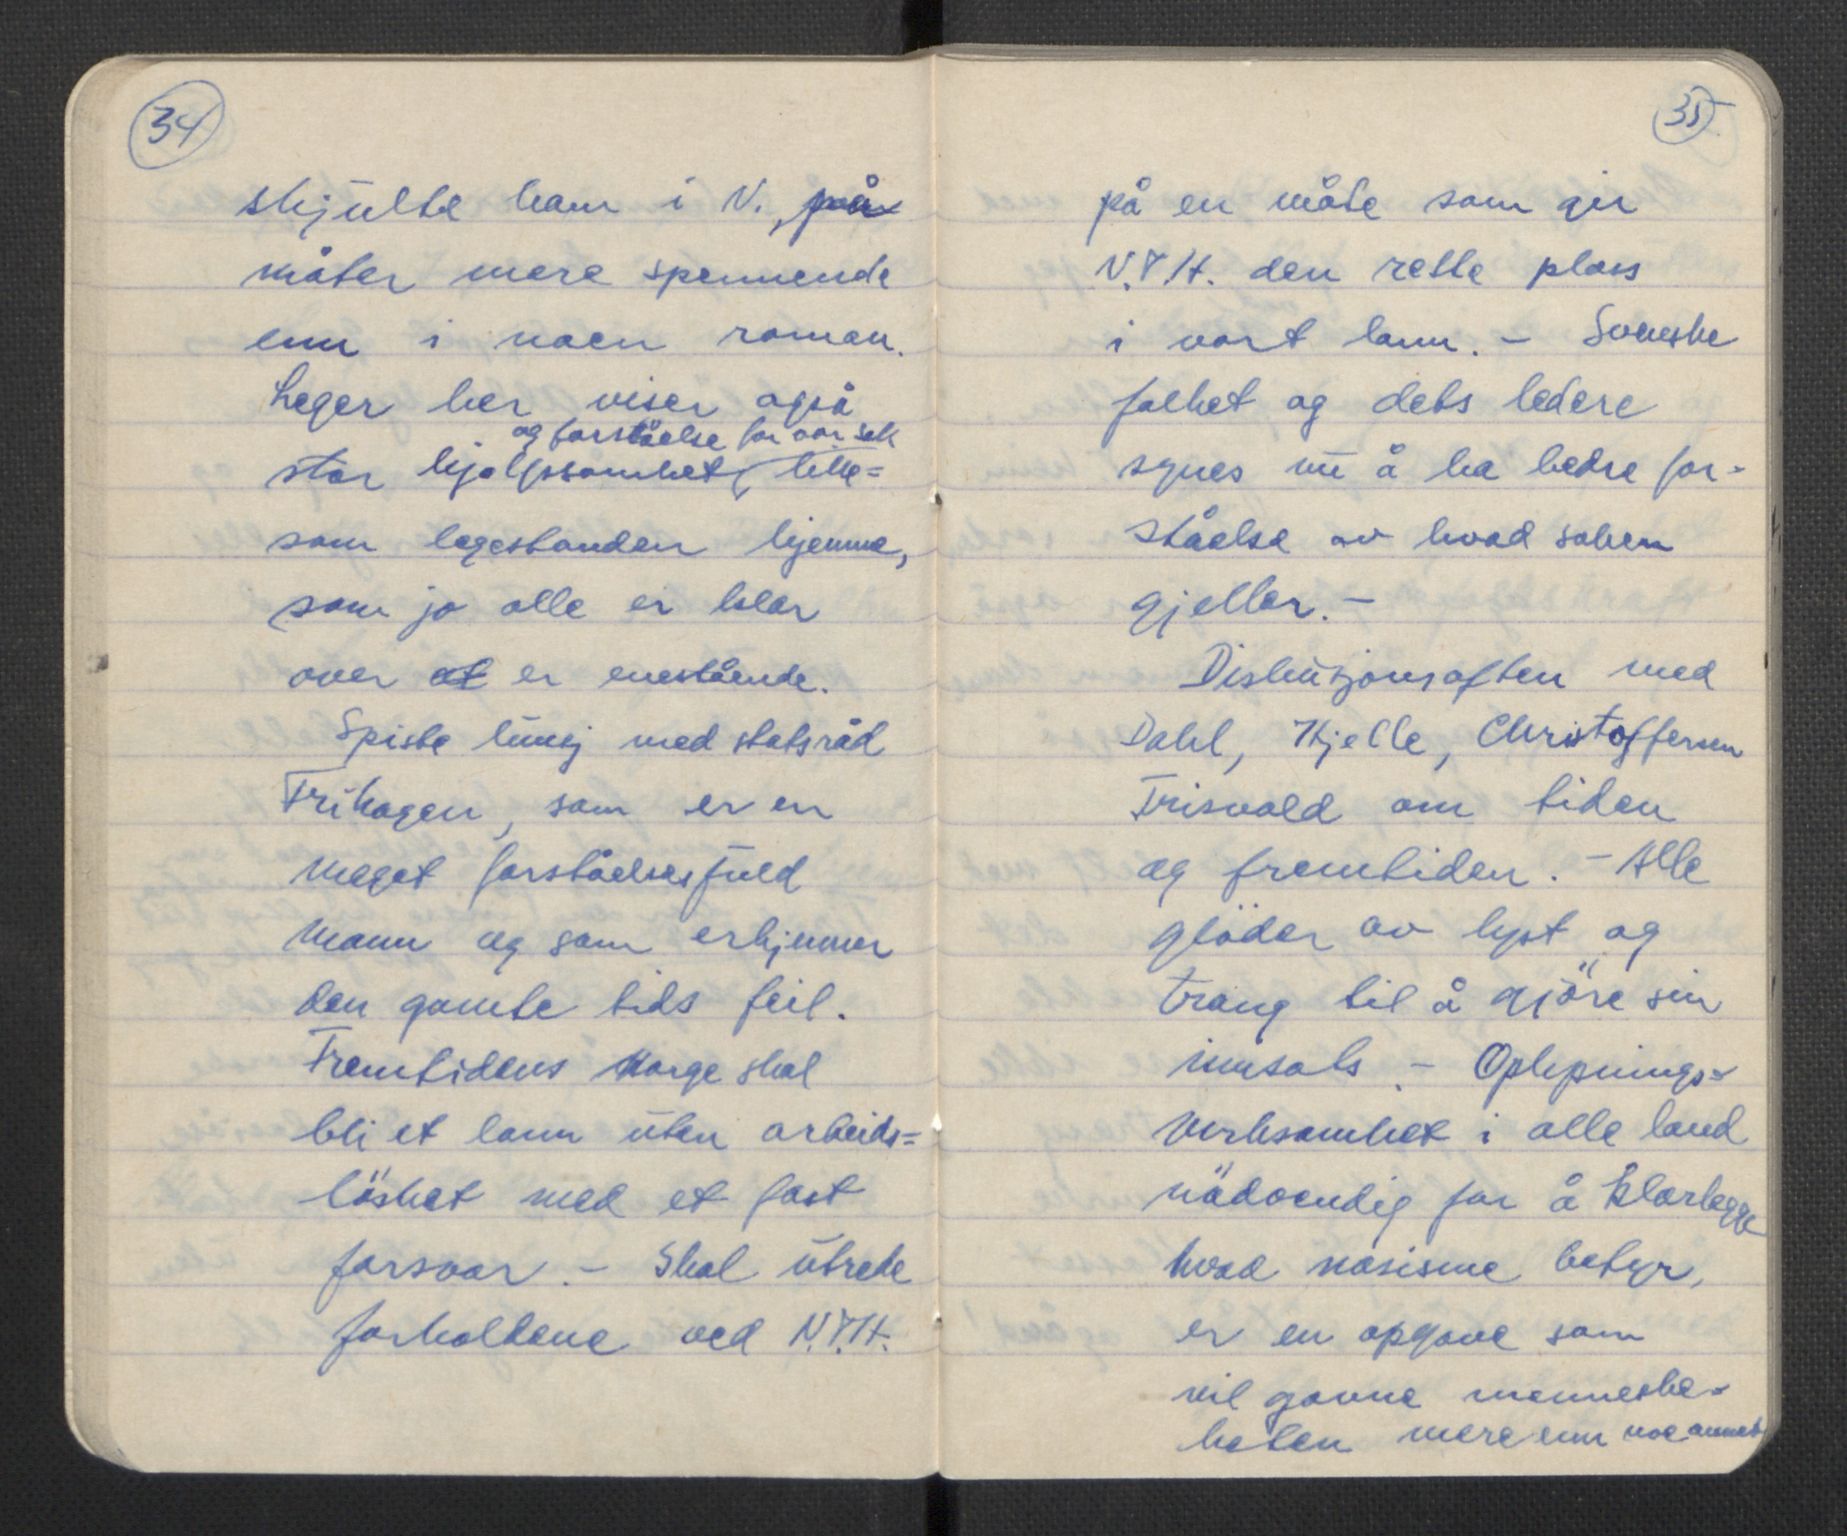 34
skjulte ham i N. på
måter mere spennende
enn i noen roman.
Leger her viser også
og forståelse for vor sak
stor hjelpsomhet, like=
som legestanden hjemme,
som jo alle er klar
over at er enestående.
Spiste lunsj med statsråd
Frihagen, som er en
meget forståelsesfuld
mann og som erkjenner
den gamle tids feil.
Fremtidens Norge skal
bli et lann uten arbeids=
löshet med et fast
forsvar. - Skal utrede
forholdene ved N.T.H.
35
på en måte som gir
N.T.H. den rette plass
i vort lann. - Svenske
folket og dets ledere
synes nu å ha bedre for-
ståelse av hvad saken
gjeller. -
Diskusjonsaften med
Dahl, Kjelle, Christoffersen
Frisvold om tiden
og fremtiden. - Alle
glöder av lyst og
trang til å gjöre sin
innsats. - Oplysnings=
virksomhet i alle land
nödvendig for å klarlegge
hvad nasisme betyr,
er en opgave som
vil gavne menneske=
heten mere enn noe annet